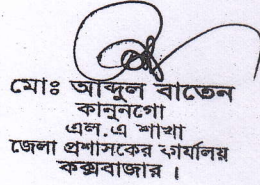 মোঃ আব্দুল বাতেন
কানুনগো
এল.এ শাখা
জেলা প্রশাসকের কার্যালয়
কক্সবাজার ।